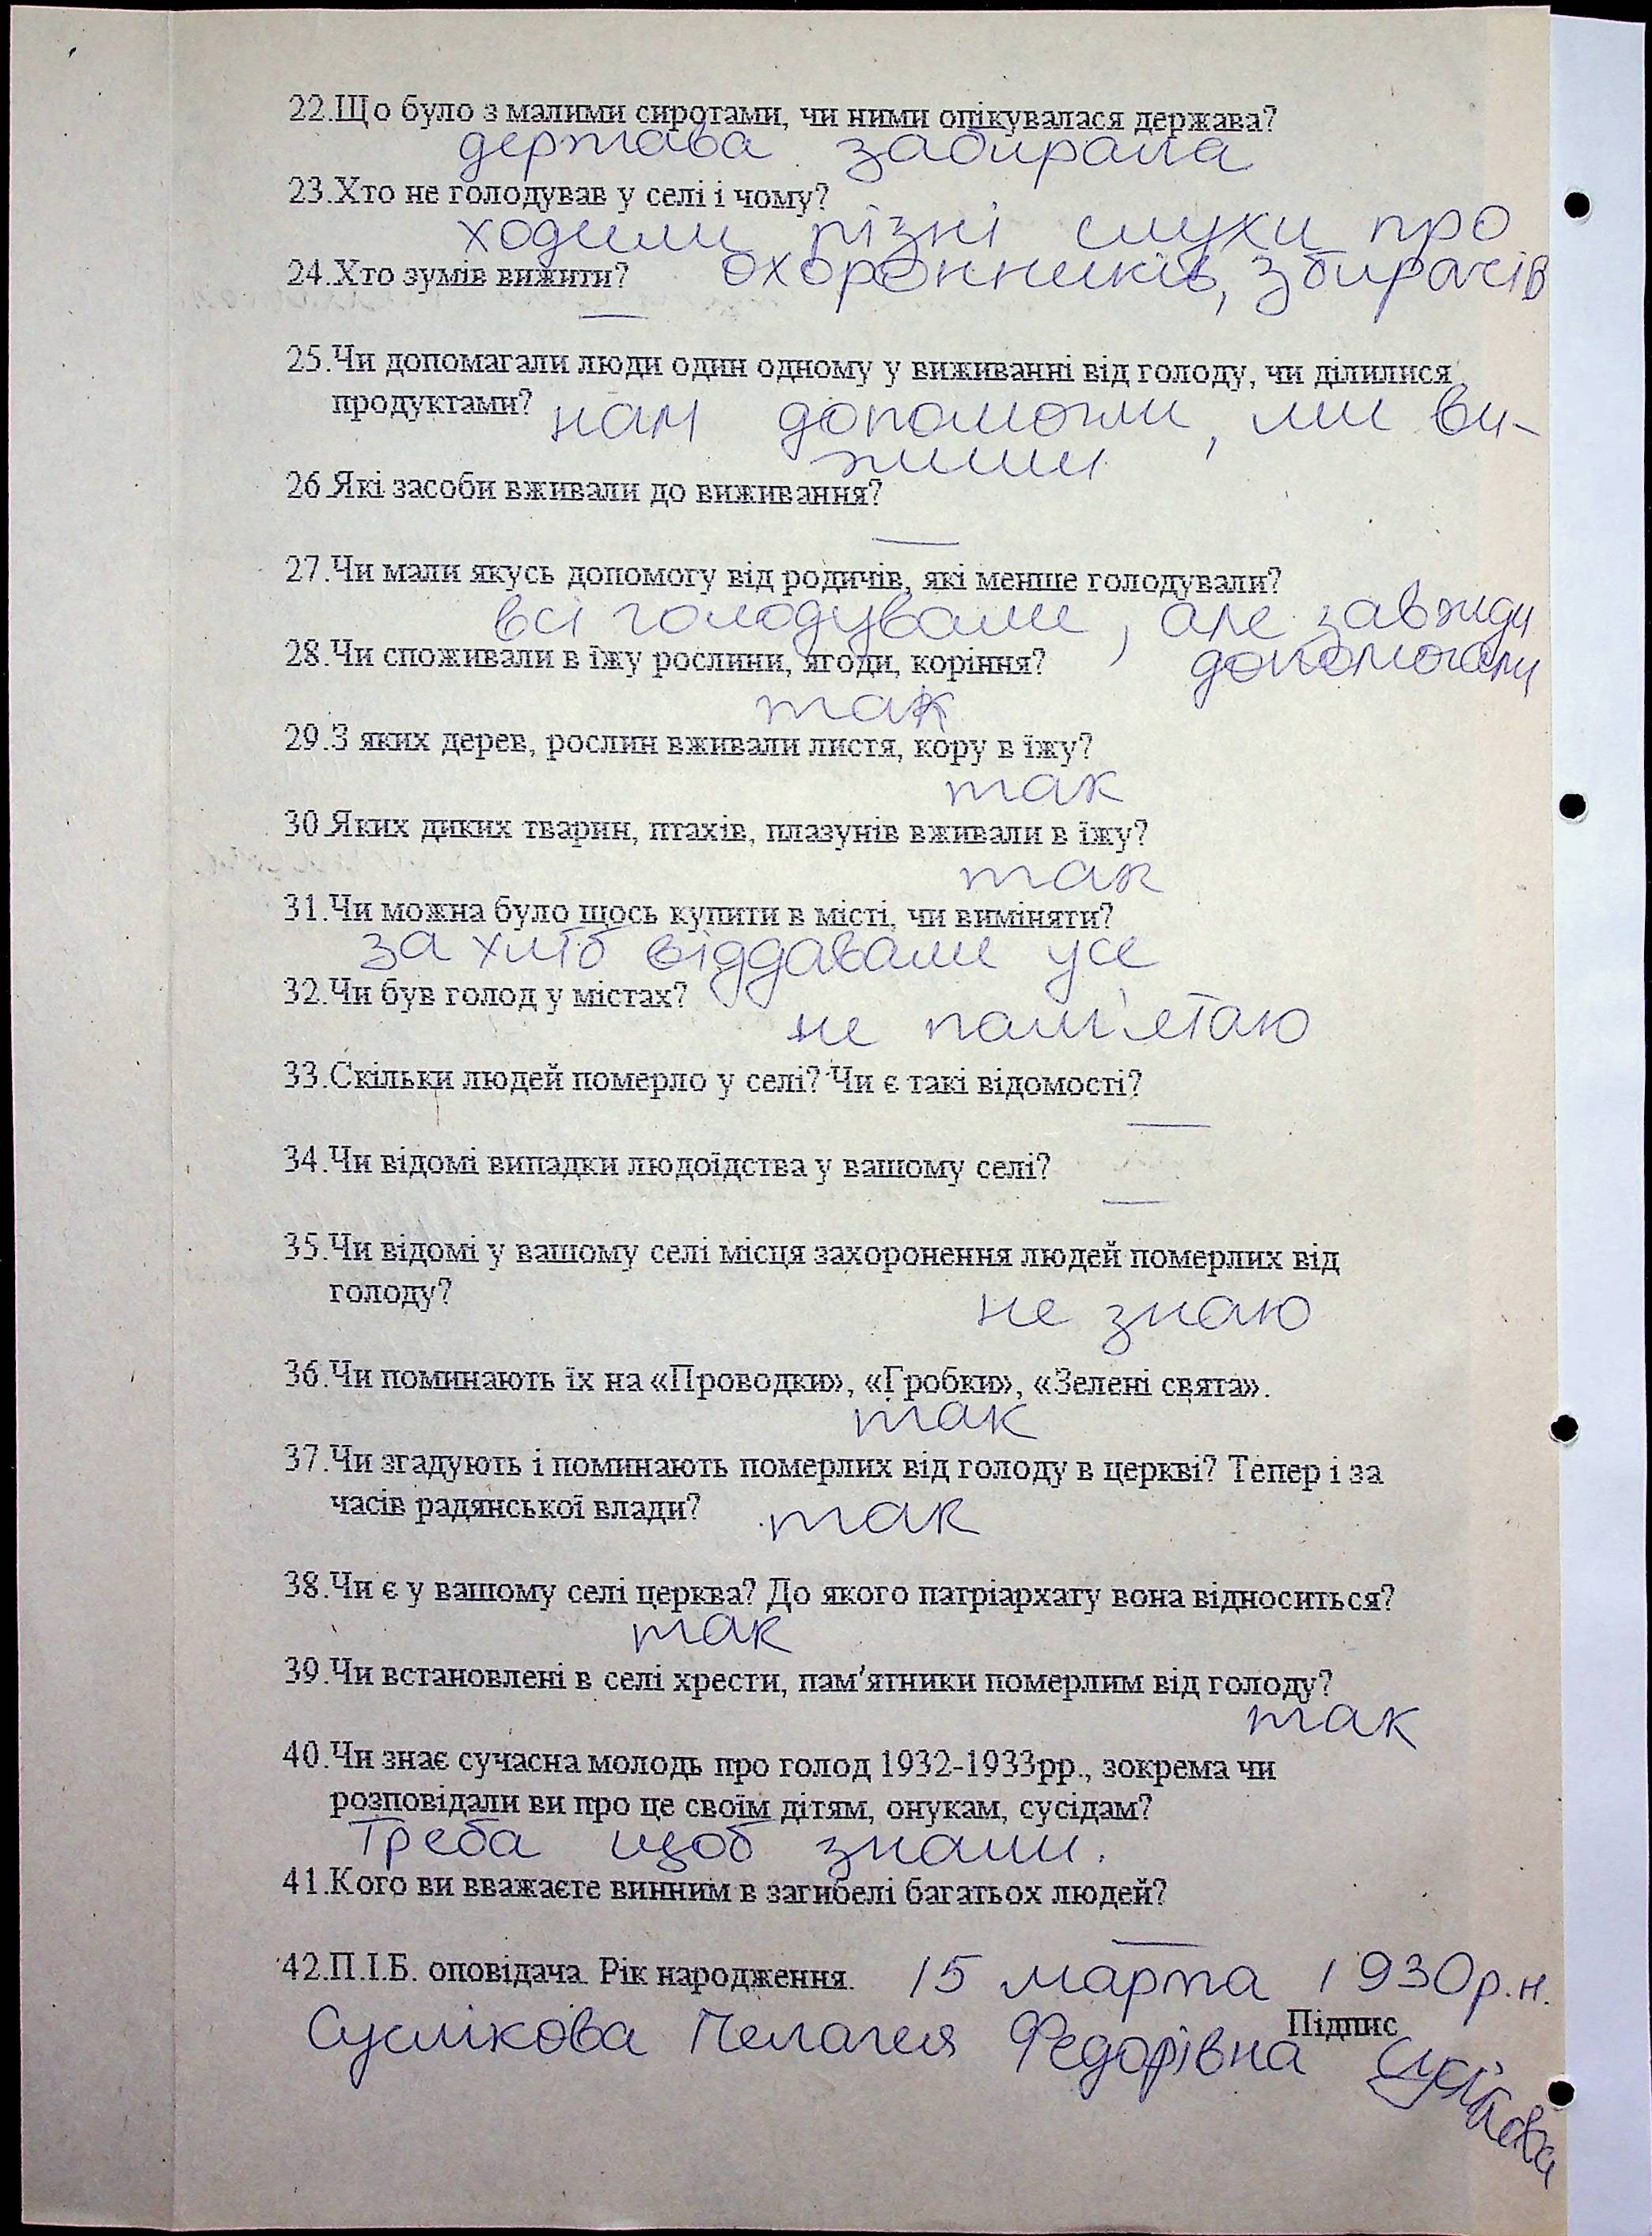 22.Що було з малими сиротами, чи ними опікувалася держава?
держава забирала
23.Хто не голодував у селі і чому?
ходили різні слухи про
24.Хто зумів вижити? охоронників, збирачів
—
25.Чи допомагали люди один одному у виживанні від голоду, чи ділилися
продуктами? нам допомогли, ми ви-
жили
26.Які засоби вживали до виживання?
—
27.Чи мали якусь допомогу від родичів, які менше голодували?
всі голодували, але завжди
28.Чи споживали в їжу рослини, ягоди, коріння? допомогали
так
29.З яких дерев, рослин вживали листя, кору в їжу?
так
30.Яких диких тварин, птахів, плазунів вживали в їжу?
так
31.Чи можна було щось купити в місті, чи виміняти?
за хліб віддавали усе
32.Чи був голод у містах?
не пам'ятаю
33.Скільки людей померло у селі? Чи є такі відомості?
—
34.Чи відомі випадки людоїдства у вашому селі?
—
35.Чи відомі у вашому селі місця захоронення людей померлих від
голоду?
не знаю
36.Чи поминають їх на «Проводки», «Гробки», «Зелені свята».
так
37.Чи згадують і поминають померлих від голоду в церкві? Тепер і за
часів радянської влади? так
38.Чи є у вашому селі церква? До якого патріархату вона відноситься?
так
39.Чи встановлені в селі хрести, пам'ятники померлим від голоду?
так
40.Чи знає сучасна молодь про голод 1932-1933рр., зокрема чи
розповідали ви про це своїм дітям, онукам, сусідам?
Треба щоб знали.
41.Кого ви вважаєте винним в загибелі багатьох людей?
—
42.П.І.Б. оповідача. Рік народження. 15 марта 1930р.н.
Підпис
Суслікова Пелагея Федорівна Суслікова